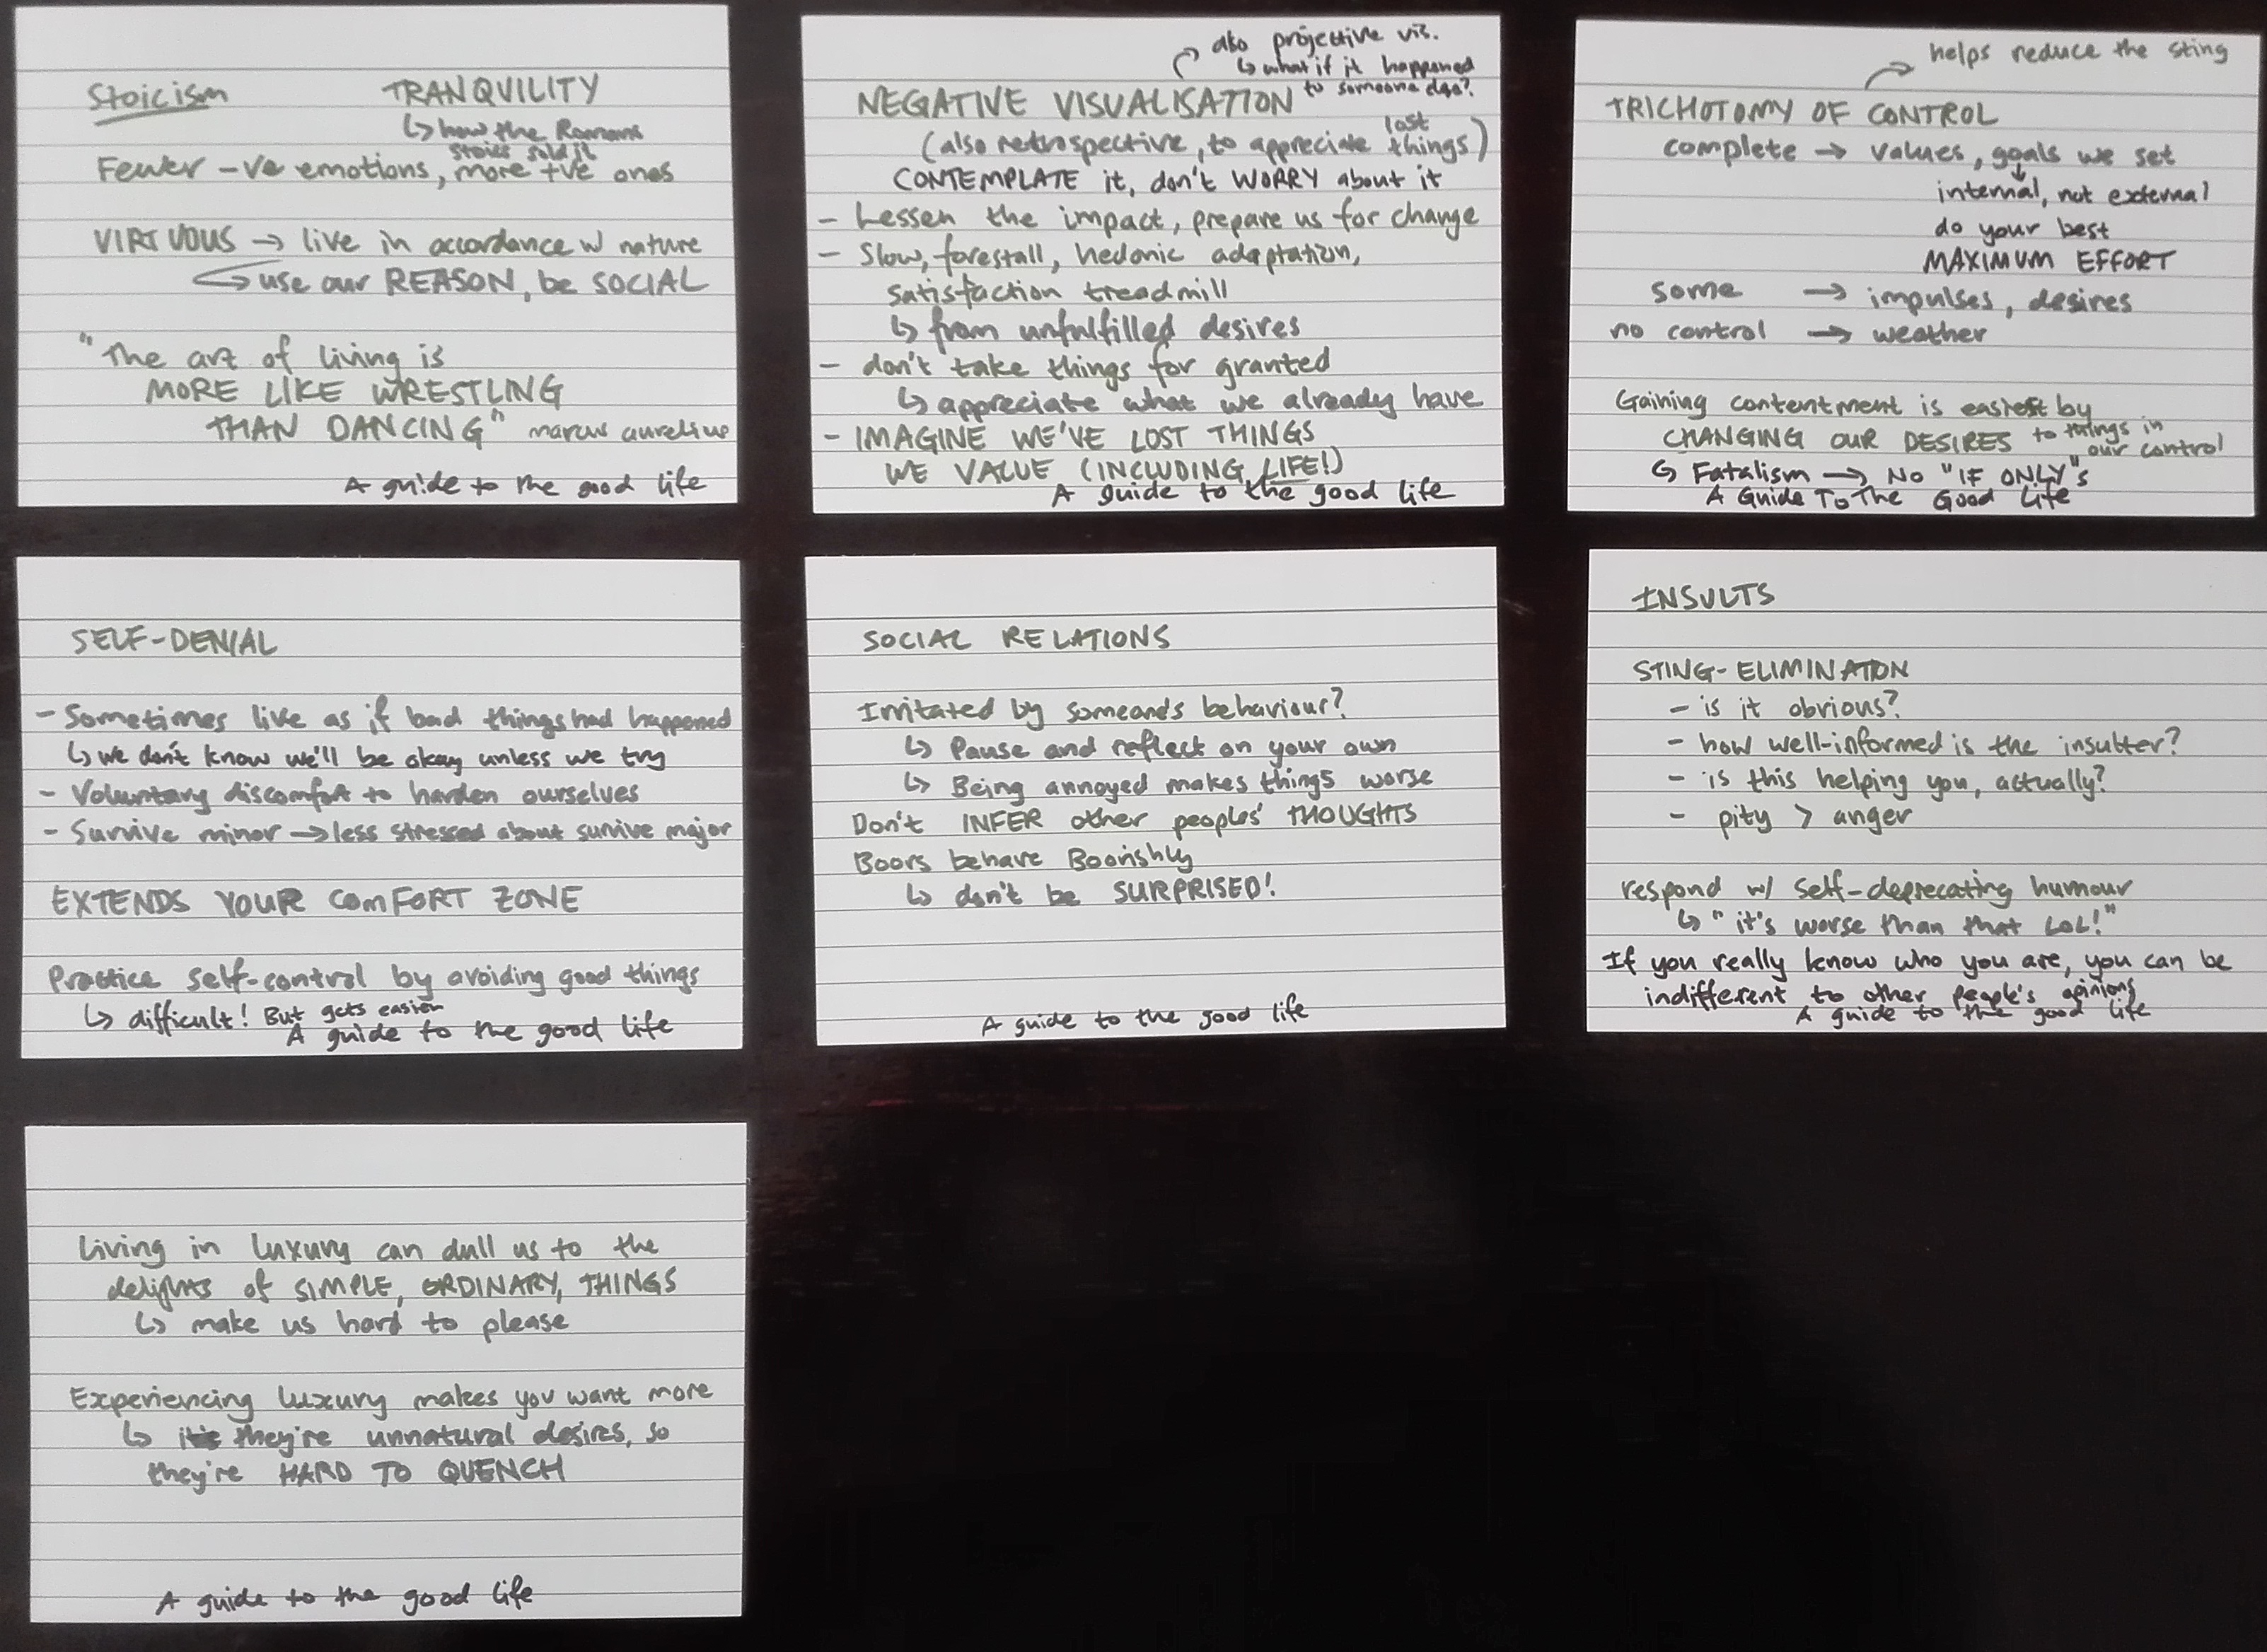 Stoicism TRANQUILITY
↳ how the Romans
stoics sold it
Fewer -ve emotions, more +ve ones
VIRTUOUS → live in accordance w nature
use our REASON, be SOCIAL
"The art of living is
MORE LIKE WRESTLING
THAN DANCING" marcus aurelius
A guide to the good life
also projective vis.
↳ what if it happened
to someone else?
NEGATIVE VISUALISATION
(also retrospective, to appreciate lost things)
CONTEMPLATE it, don't WORRY about it
- Lessen the impact, prepare us for change
- Slow, forestall, hedonic adaptation,
satisfaction treadmill
↳ from unfulfilled desires
- don't take things for granted
↳ appreciate what we already have
- IMAGINE WE'VE LOST THINGS
WE VALUE (INCLUDING LIFE!)
A guide to the good life
helps reduce the sting
TRICHOTOMY OF CONTROL
complete → values, goals we set
internal, not external
do your best
MAXIMUM EFFORT
some → impulses, desires
no control → weather
Gaining contentment is easiest by
CHANGING OUR DESIRES to things in
our control
↳ Fatalism → No "IF ONLY"s
A Guide To The Good Life
SELF-DENIAL
- Sometimes live as if bad things had happened
↳ we don't know we'll be okay unless we try
- Voluntary discomfort to harden ourselves
- Survive minor → less stressed about survive major
EXTENDS YOUR COMFORT ZONE
Practice self-control by avoiding good things
↳ difficult! But gets easier
A guide to the good life
SOCIAL RELATIONS
Irritated by someone's behaviour?
↳ Pause and reflect on your own
↳ Being annoyed makes things worse
Don't INFER other peoples' THOUGHTS
Boors behave Boorishly
↳ don't be SURPRISED!
A guide to the good life
INSULTS
STING-ELIMINATION
- is it obvious?
- how well-informed is the insulter?
- is this helping you, actually?
- pity > anger
respond w/ self-deprecating humour
↳ "it's worse than that LOL!"
If you really know who you are, you can be
indifferent to other people's opinions
A guide to the good life
Living in luxury can dull us to the
delights of SIMPLE, ORDINARY, THINGS
↳ make us hard to please
Experiencing luxury makes you want more
↳ they're unnatural desires, so
they're HARD TO QUENCH
A guide to the good life